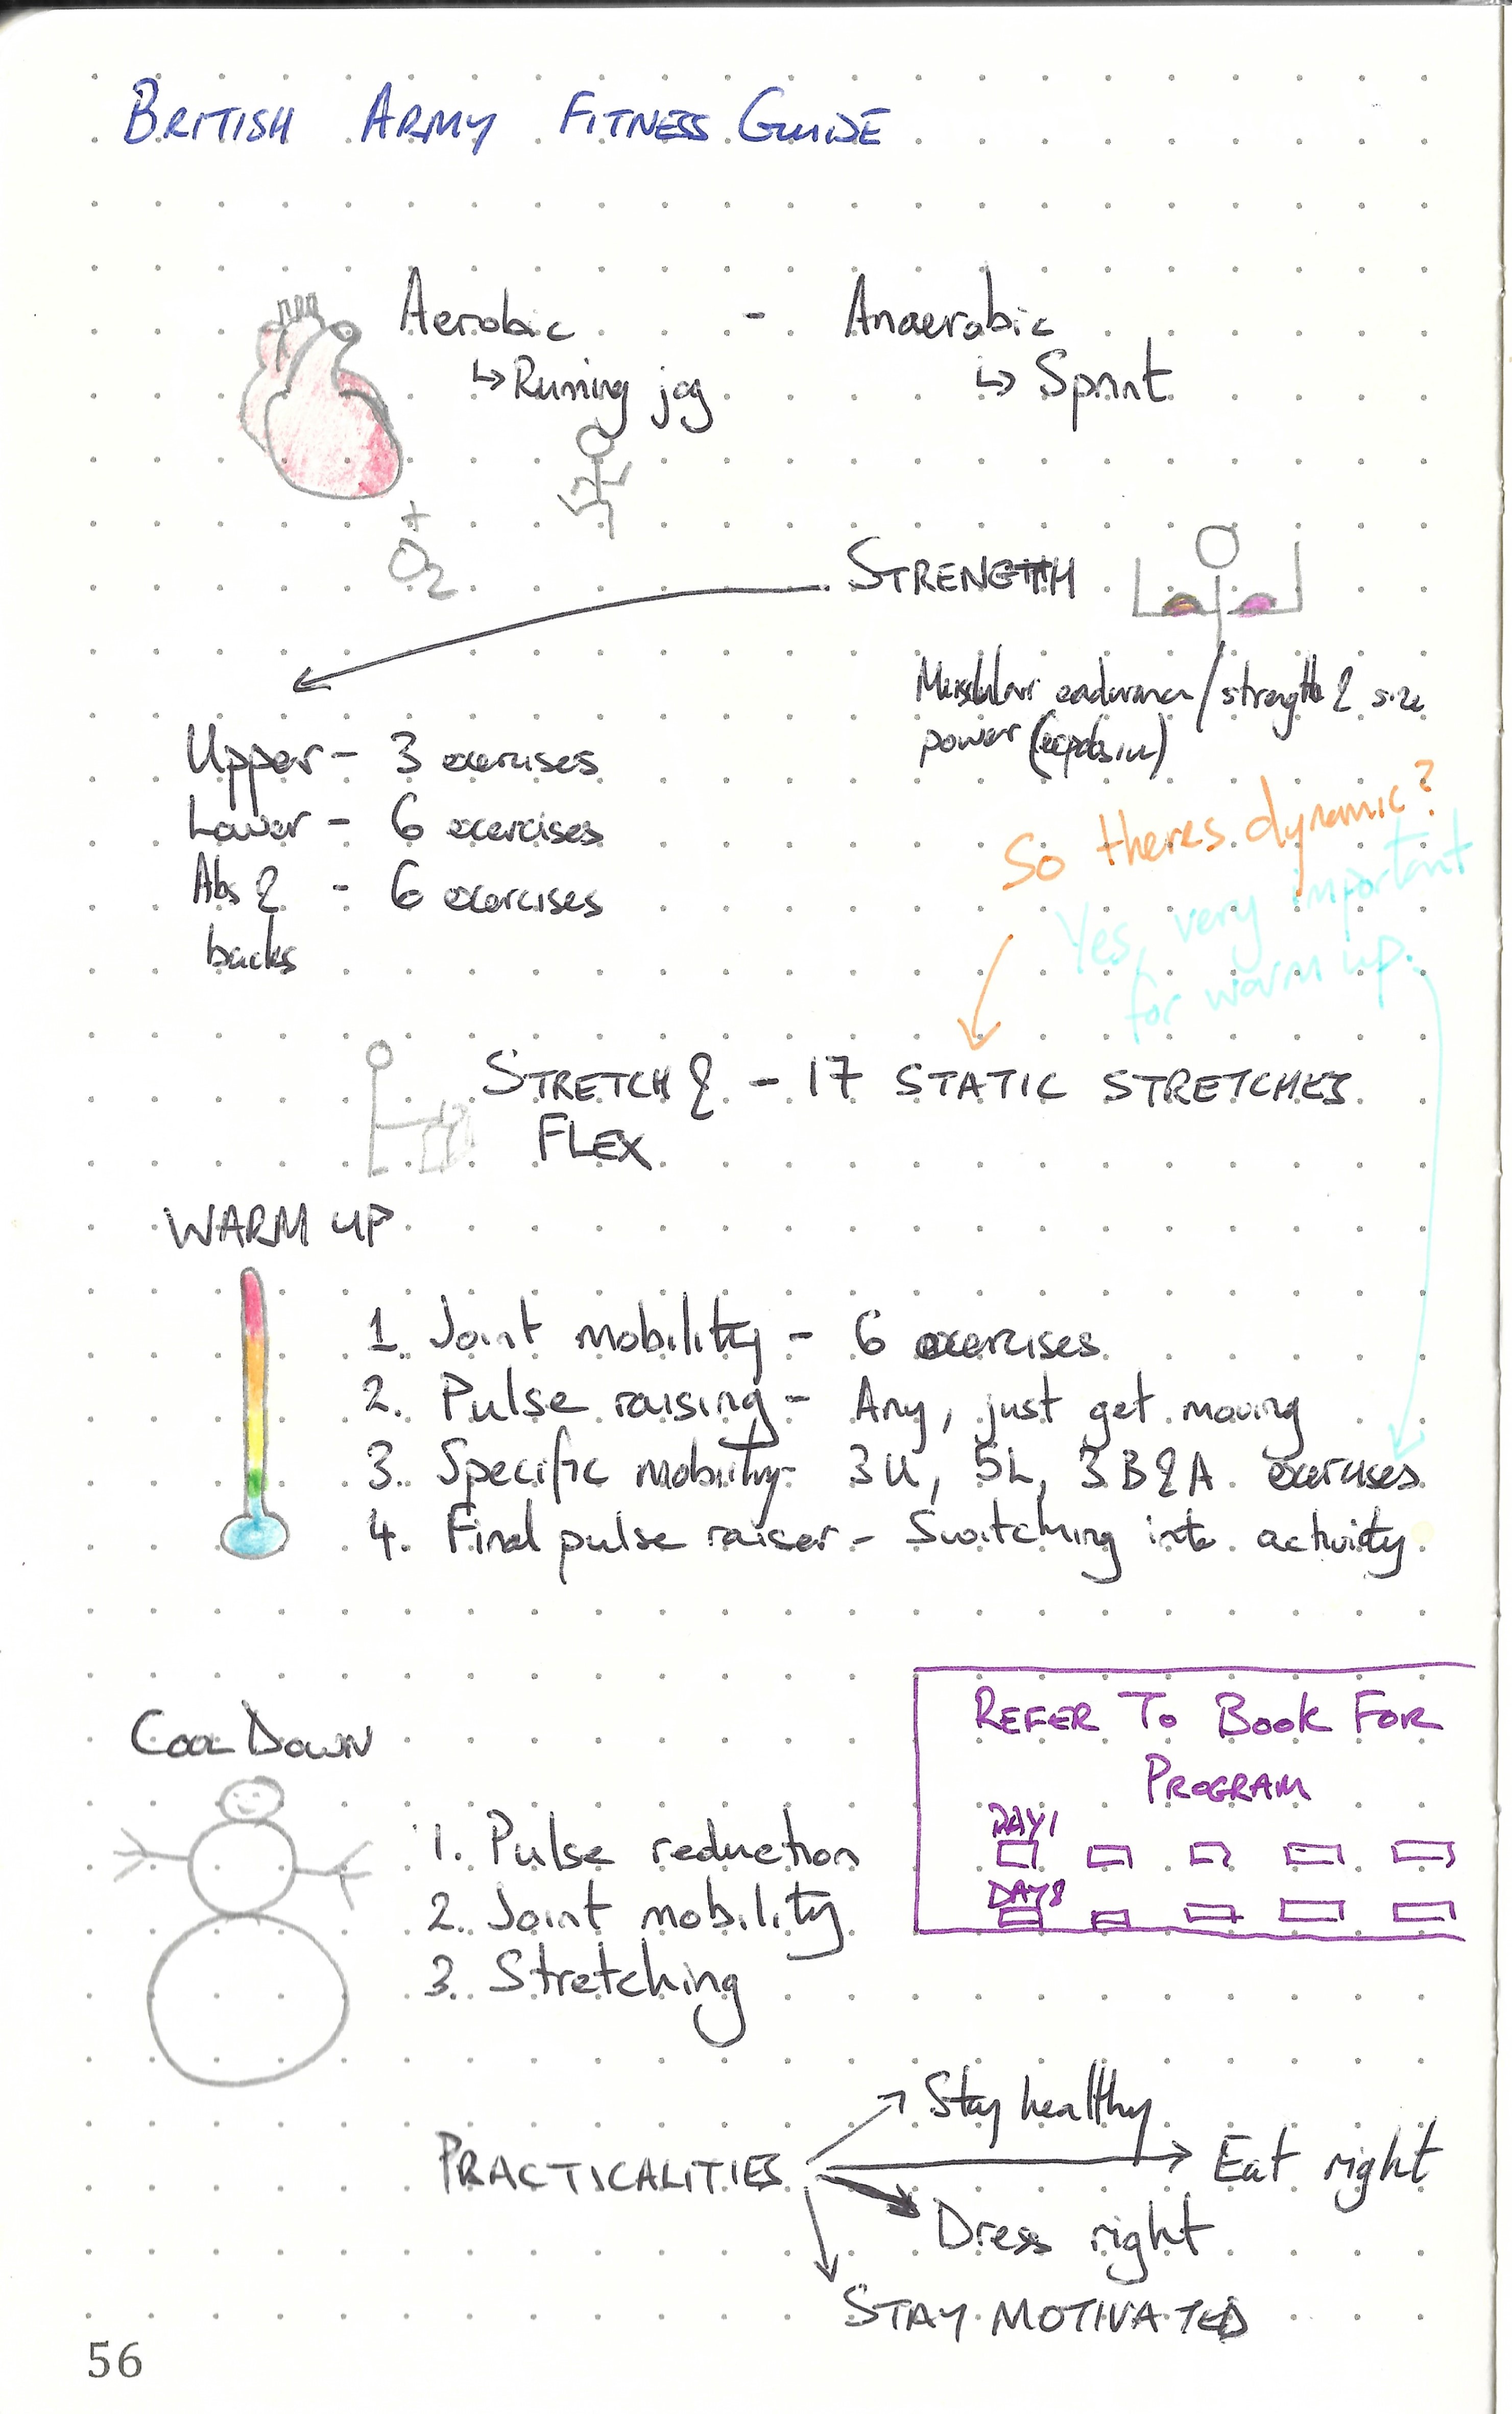 BRITISH ARMY FITNESS GUIDE
Aerobic - Anaerobic
↳ Running jog ↳ Sprint
+
O2
STRENGTH
Muscular endurance/strength & size
power (explosive)
Upper - 3 exercises
Lower - 6 exercises
Abs & - 6 exercises
backs
So theres dynamic?
Yes, very important
for warm up.
STRETCH & - 17 STATIC STRETCHES
FLEX
WARM UP
1. Joint mobility - 6 exercises
2. Pulse raising - Any, just get moving
3. Specific mobility - 3U, 5L, 3B&A exercises
4. Final pulse raiser - Switching into activity
COOL DOWN
1. Pulse reduction
2. Joint mobility
3. Stretching
REFER TO BOOK FOR
PROGRAM
DAY1
DAY8
PRACTICALITIES
Stay healthy
Eat right
Dress right
STAY MOTIVATED
56